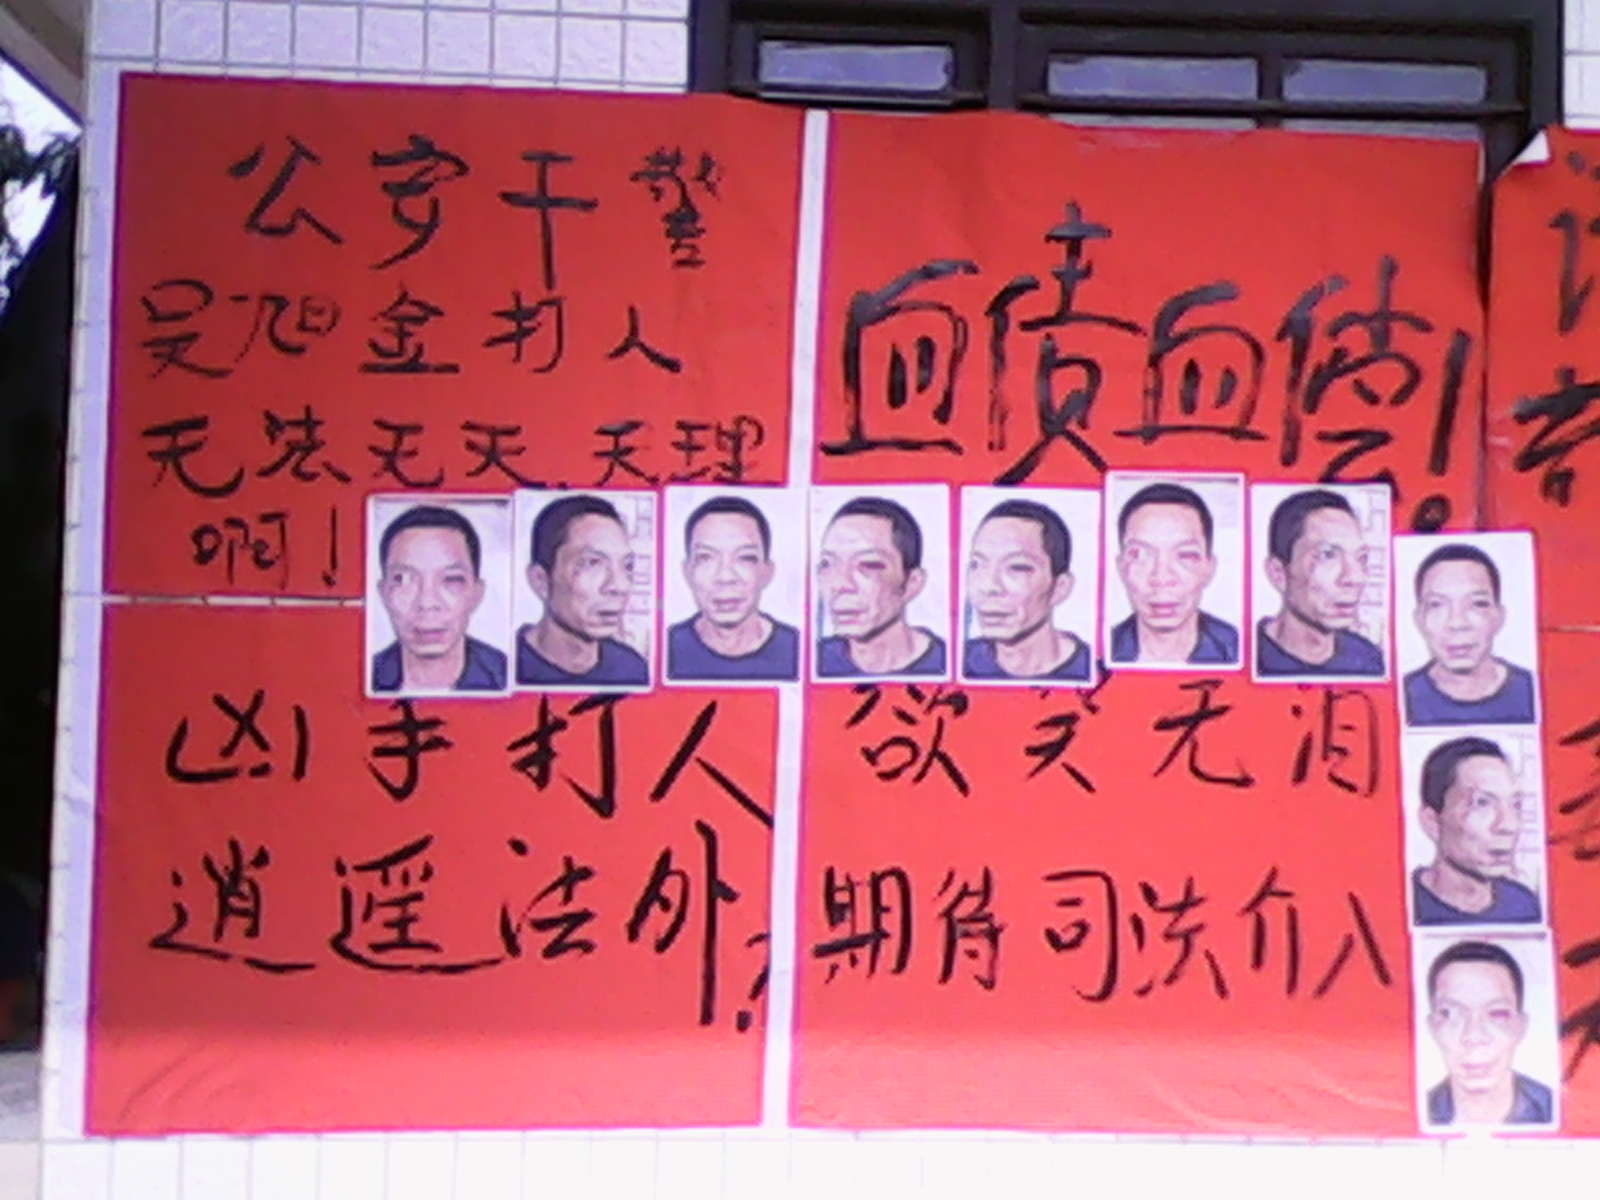 公安干警
吴旭金打人
无法无天.天理
啊!
血债血偿!
凶手打人
逍遥法外?
欲笑无泪
期待司法介入